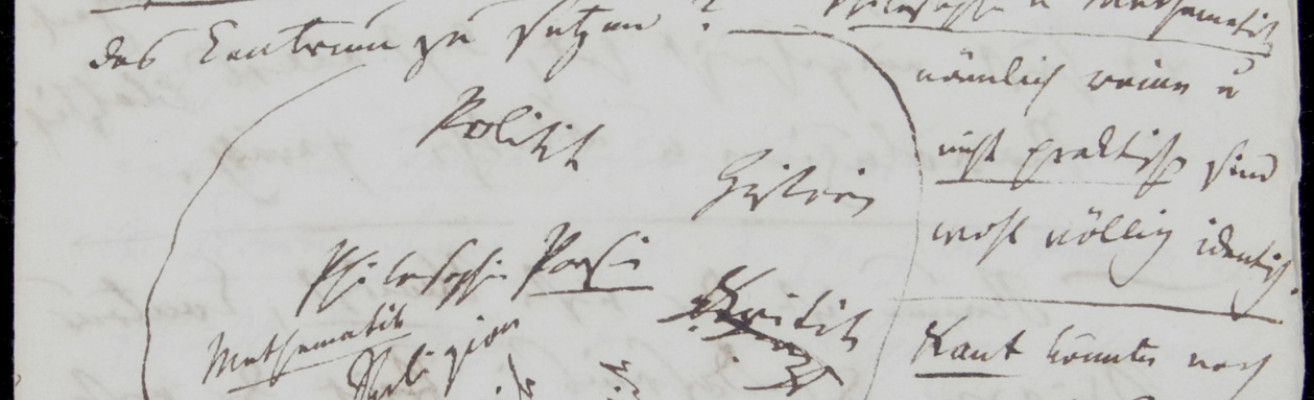 das Centrum zu setzen?
Politik
Historie
Philosophie Poesie
Mathematik
Religion
Kritik
Philosophie u Mathematik
nämlich reine u
nicht praktische sind
wohl völlig identisch.
Kant könnte nach